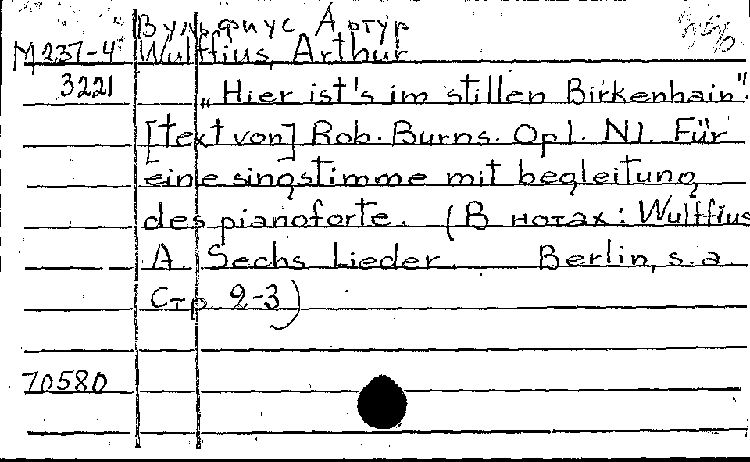 Вульфиус Артур
М 237-4 Wulffius, Arthur
3221 „Hier ist's im stillen Birkenhain".
[text von] Rob. Burns. Op1. N1. Für
eine singstimme mit begleitung
des pianoforte. (В нотах: Wulffius
A. Sechs Lieder. Berlin, s.a.
Стр 2-3)
70580